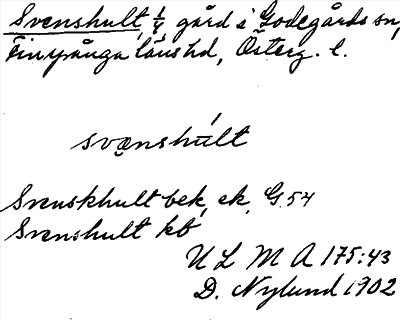 Svenshult, 1/4 gård i Godegårds sn,
Finspånga läns hd, Österg. l.
svænshúlt
Svenskhult bek, ek, G. 54
Svenshult kb
U L M A 175:43
D. Nylund 1902